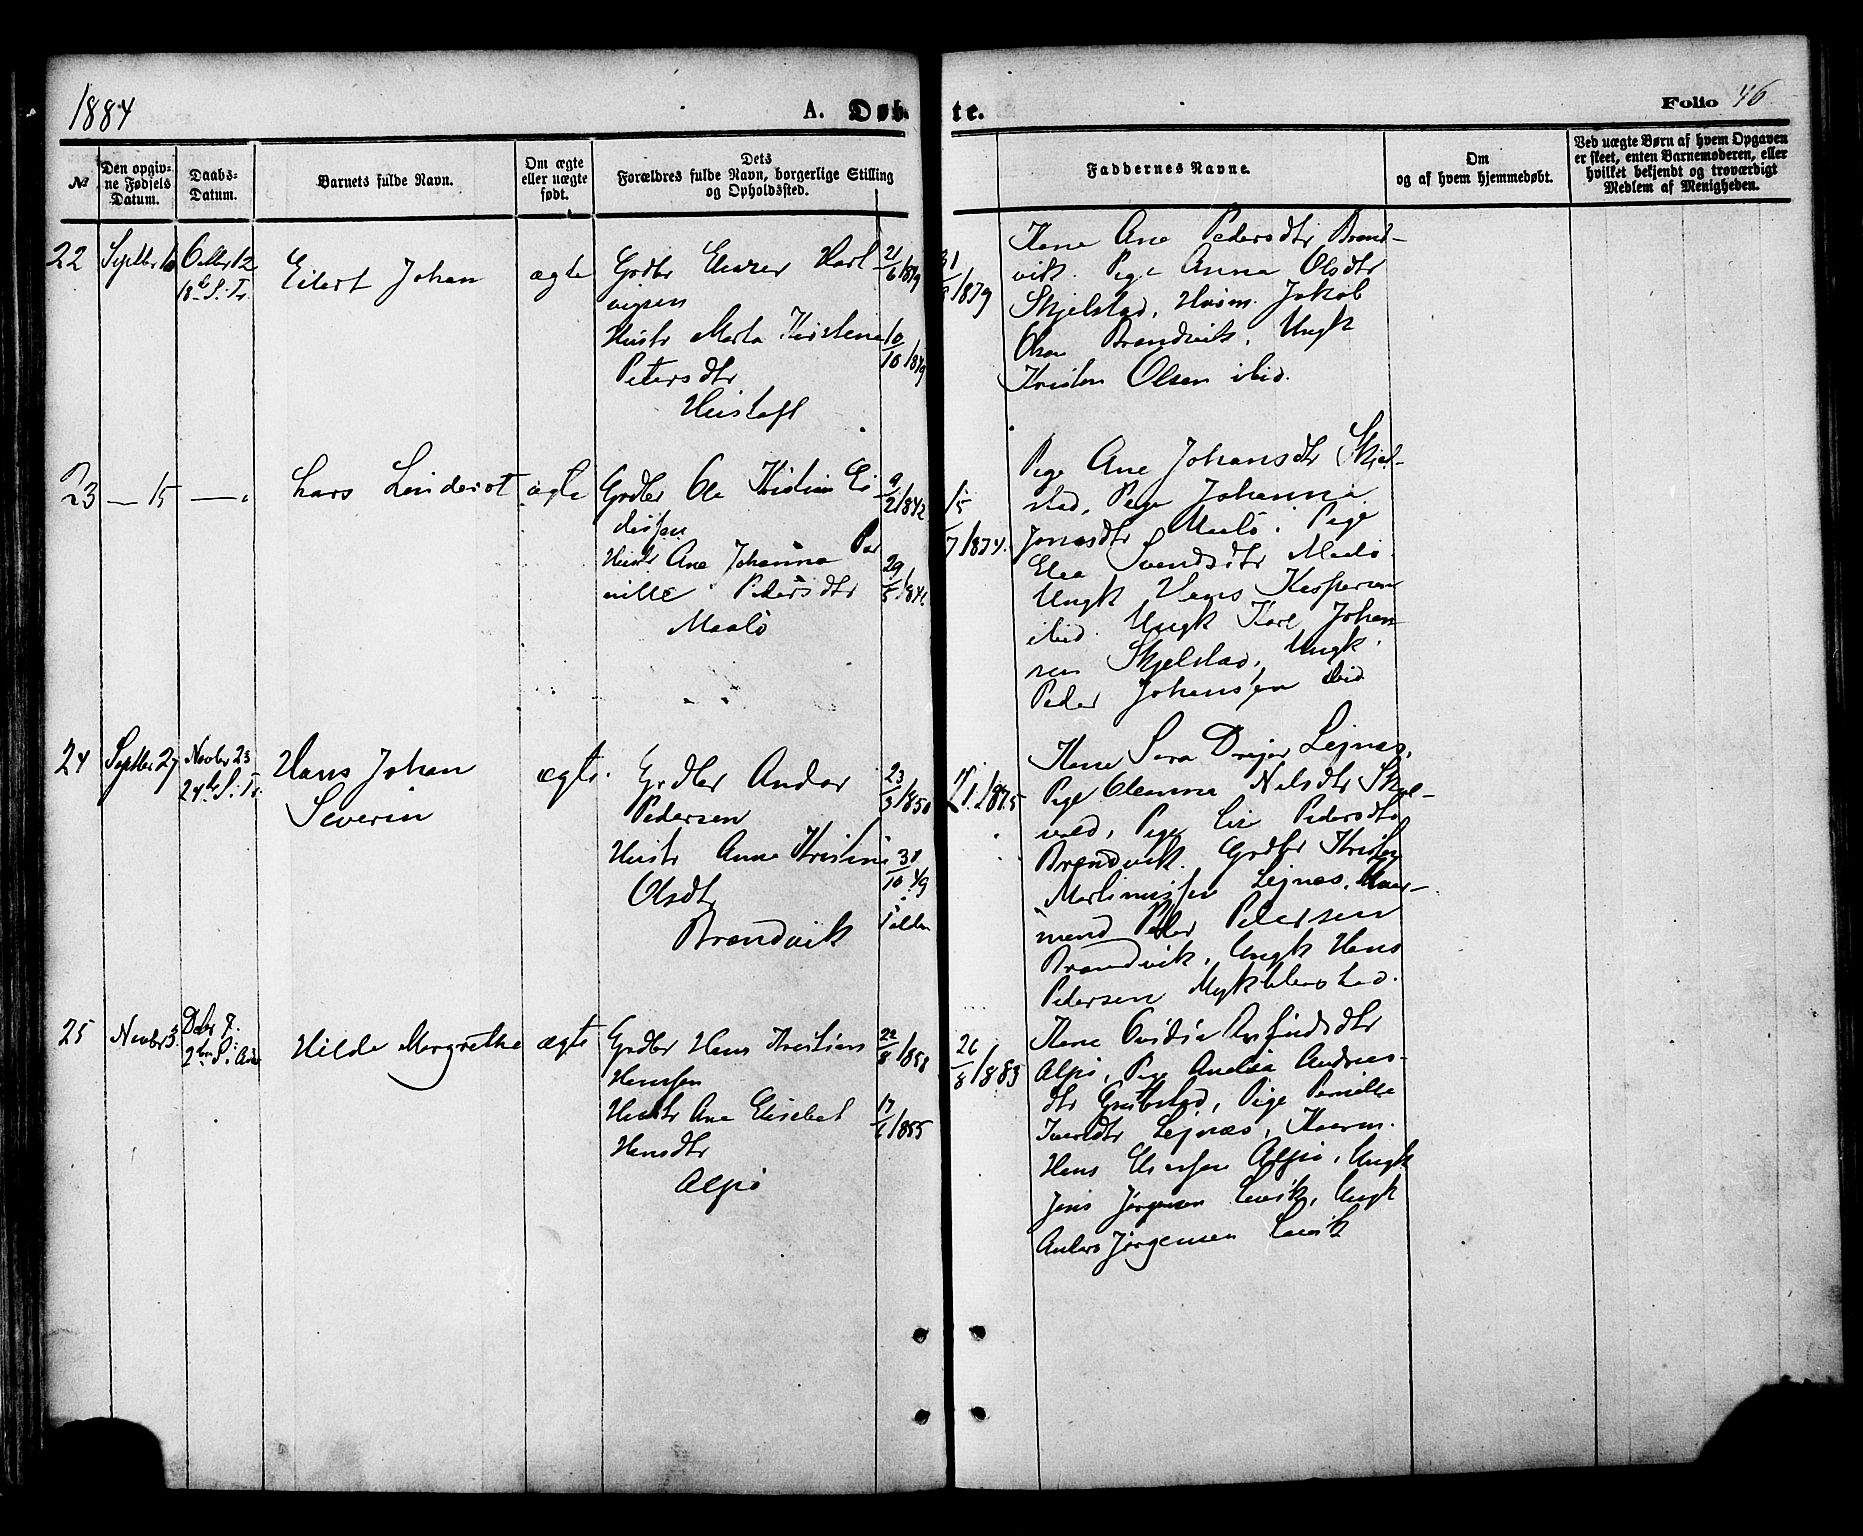 1884
A. Døb-
te.
Folio 46
№
Den opgiv-
ne Fødsels
Datum.
Daabs-
Datum.
Barnets fulde Navn.
Om ægte
eller uægte
født.
Dets
Forældres fulde Navn, borgerlige Stilling
og Opholdssted.
Faddernes Navne.
Om
og af hvem hjemmedøbt.
Ved uægte Børn af hvem Opgaven
er skeet, enten Barnemoderen, eller
hvilket bekjendt og troværdigt
Medlem af Menigheden.
22
Septbr 10
Octbr 12
18de S. Tr.
Eilert Johan
ægte
Grdbr Hart
vigsen
Hustr Marta Kirstena
Petersdtr
10/10 1849
31 1879
Kone Ane Pedersdtr Brand-
vik. Pige Anna Olsdtr
Skjelstad, Husm. Jakob
Olsen Brandvik, Ungk
Kristen Olsen ibid.
23
— 15
— "
Lars Linderot
ægte
Grdbr Ole Kristian
9/2 1842
Hustr Ane Johanna Per
nille Pedersdtr
Maalö
15/7 1874.
Pige Ane Johansdtr Skjel-
stad, Pige Johanna
Jonasdtr Maalö. Pige
Elea Svendsdtr Maalö.
Ungk Hans Kaspersen
ibid. Ungk Karl Johan-
sen Skjelstad, Ungk.
Peder Johansen ibid
24
Septbr 27
Novbr 23
24de S. Tr.
Hans Johan
Severin
ægte.
Grdbr Andor
Pedersen
23/3 1850
Hustr Anna Kristine
Olsdtr
Brandvik
1875
Kone Sara Drejer Lejnæs,
Pige Oleanna Nilsdtr
Pige Lise Pedersdtr
Brandvik. Grdbr Kristen
Martinussen Lejnæs,
mand Peder Pedersen
Brandvik, Ungk Hans
Pedersen Myklebostad.
25
Novbr 3.
Decbr 7.
2den S. i Adv.
Hilda Margrethe
ægte
Grdbr Hans Kristian
Hansen
22/8 1858
Hustr Ane Elisebet
Hansdtr
Alpö
17/6 1855
26/8 1883
Kone
Alpö, Pige Amalia Andreas-
dtr Grabstad, Pige Pernille
Iversdtr Lejnæs, Kaarm.
Hans Alpö, Ungk
Jens Jørgensen Løvik, Ungk
Anders Jørgensen Løvik